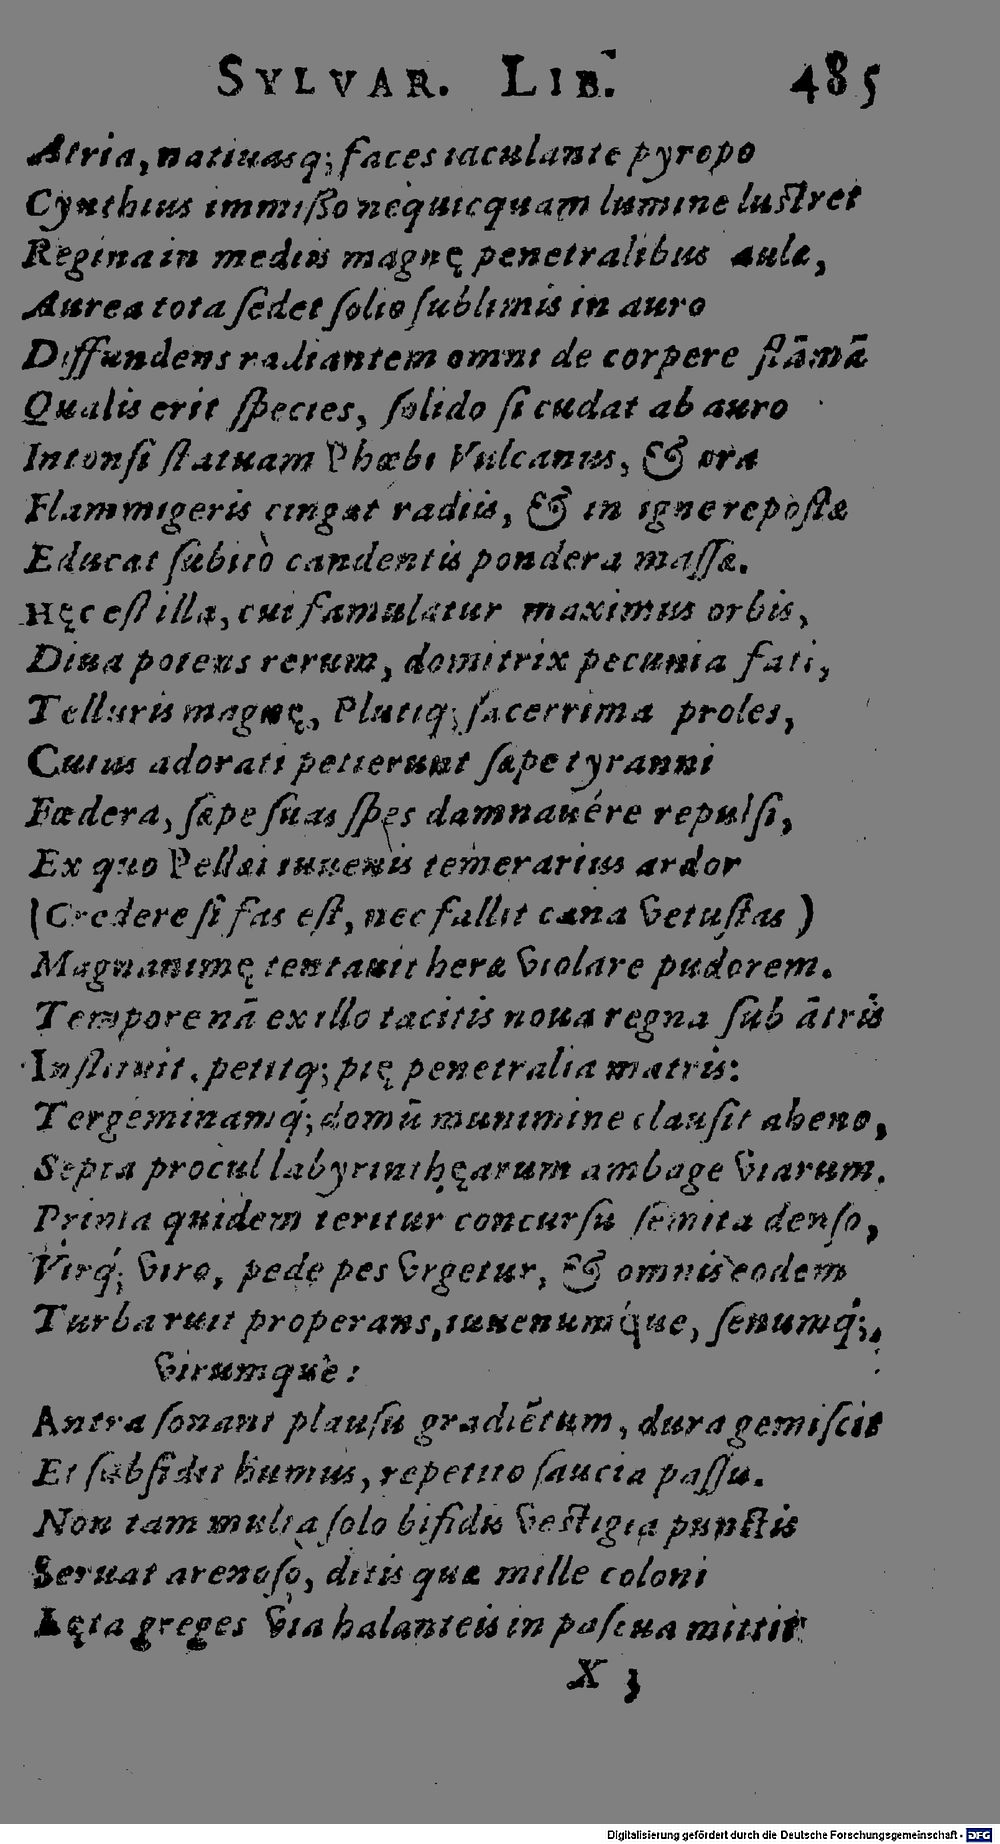 SYLVAR. LIB. 485
Atria, natiuasq; faces iaculante pyropo
Cynthius immißo nequicquam lumine lustret
Regina in mediis magnę penetralibus aulæ,
Aurea tota sedet solio sublimis in auro
Diffundens radiantem omni de corpore flāmā
Qualis erit species, solido si cudat ab auro
Intonsi statuam Phœbi Vulcanus, & ora
Flammigeris cingat radiis, & in igne repostæ
Educat subitò candentis pondera massæ.
Hęc est illa, cui famulatur maximus orbis,
Diua potens rerum, domitrix pecunia fati,
Telluris magnę, Plutiq; sacerrima proles,
Cuius adorati petierunt sæpe tyranni
Fœdera, sæpe suas spes damnauére repulsi,
Ex quo Pellæi iuuenis temerarius ardor
(Credere si fas est, nec fallit cana vetustas)
Magnanimę tentauit heræ violare pudorem.
Tempore nā ex illo tacitis noua regna sub ātris
Instituit, petitq; pię penetralia matris:
Tergeminamq́; domū munimine clausit aheno,
Septa procul labyrinthęarum ambage viarum.
Prima quidem teritur concursu semita denso,
Virq́; viro, pede pes vrgetur, & omnis eodem
Turba ruit properans, iuuenumq́ue, senumq́;,
virumque:
Antra sonant plausu gradiētum, dura gemiscit
Et subsidit humus, repetito saucia passu.
Non tam multa solo bifidis vestigia punctis
Seruat arenoso, ditis quæ mille coloni
Lęta greges via halanteis in pascua mittit
X 3
Digitalisierung gefördert durch die Deutsche Forschungsgemeinschaft - DFG